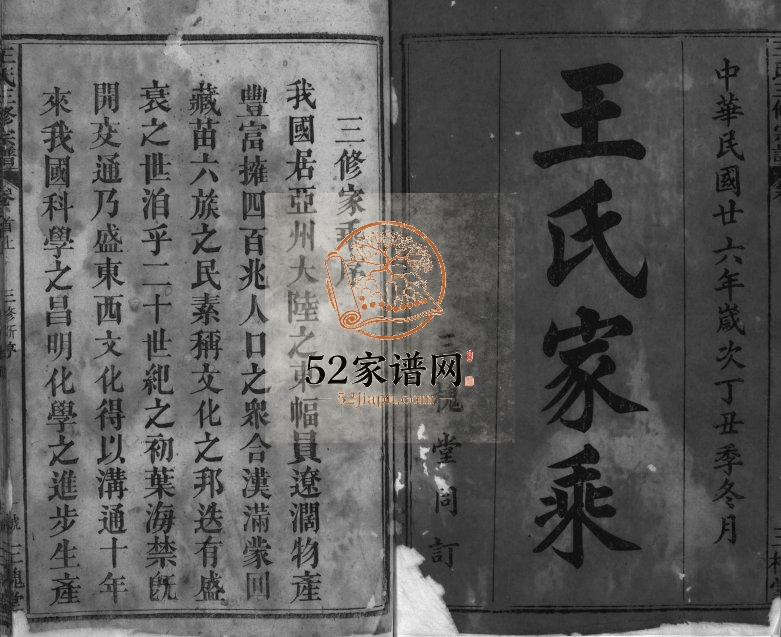 中華民國廿六年歲次丁丑季冬月
王氏家乘
三槐堂同訂
三修家乘序
我國居亞州大陸之東幅員遼濶物產
豐富擁四百兆人口之眾合漢滿蒙回
藏苗六族之民素稱文化之邦迭有盛
衰之世洎乎二十世紀之初葉海禁旣
開交通乃盛東西文化得以溝通十年
來我國科學之昌明化學之進步生產
王氏三修宗譜
卷首上
三修新序
三槐堂
52家谱网
52jiapu.com